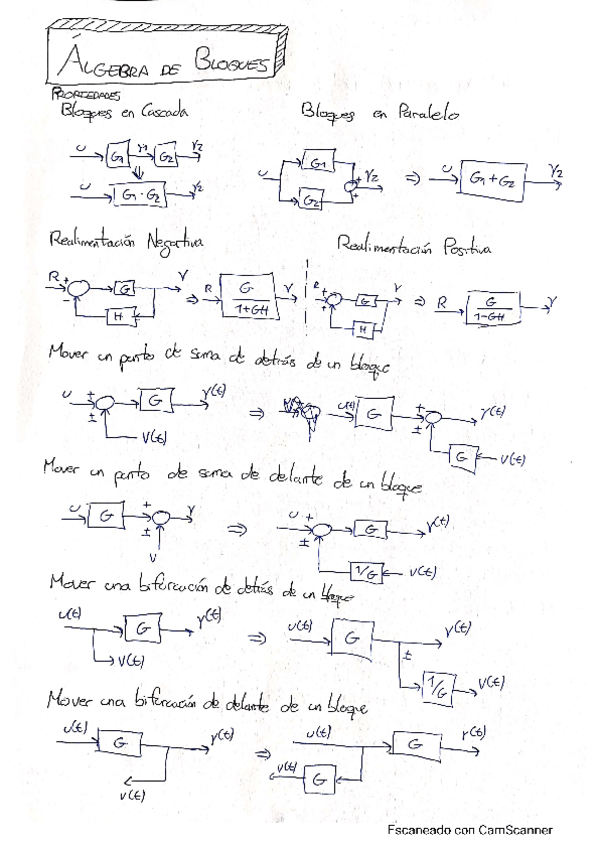 ÁLGEBRA DE BLOQUES
PROPIEDADES
Bloques en Cascada
Bloques en Paralelo
U G1 Y1 G2 Y2
U G1·G2 Y2
U G1 G2 + + Y2 ⇒ U G1+G2 Y2
Realimentación Negativa
Realimentación Positiva
R + - G H Y ⇒ R G/1+GH Y
R + + G H Y ⇒ R G/1-GH Y
Mover un punto de suma de detrás de un bloque
U ± ± G Y(t) V(t) ⇒ U(t) G ± ± Y(t) G V(t)
Mover un punto de suma de delante de un bloque
U G + ± Y V ⇒ U + ± G Y(t) 1/G V(t)
Mover una bifurcación de detrás de un bloque
U(t) G Y(t) V(t) ⇒ U(t) G Y(t) ± 1/G V(t)
Mover una bifurcación de delante de un bloque
U(t) G Y(t) V(t) ⇒ U(t) G Y(t) V(t) G
Escaneado con CamScanner